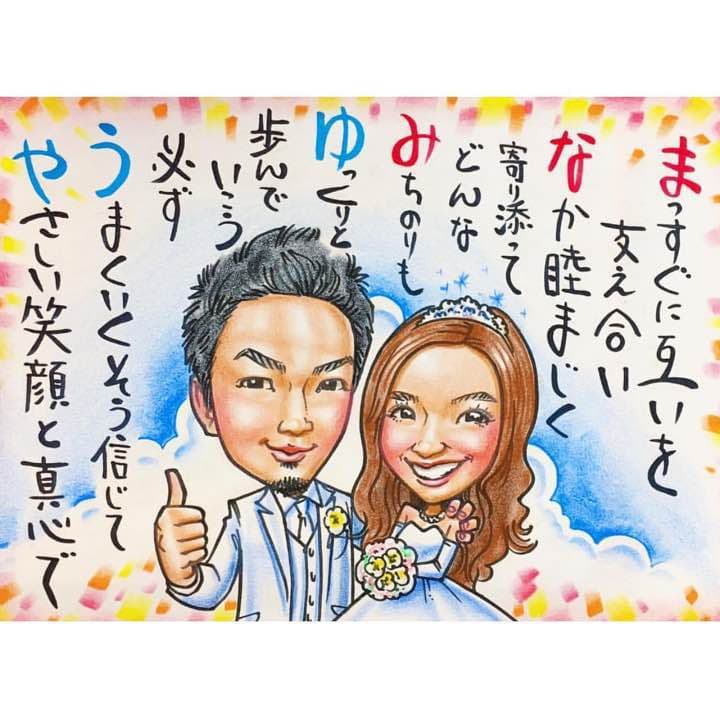 まっすぐに互いを
支え合い
なか睦まじく
寄り添って
どんな
みちのりも
ゆっくりと
歩んで
いこう
必ず
うまくいくそう信じて
やさしい笑顔と真心で